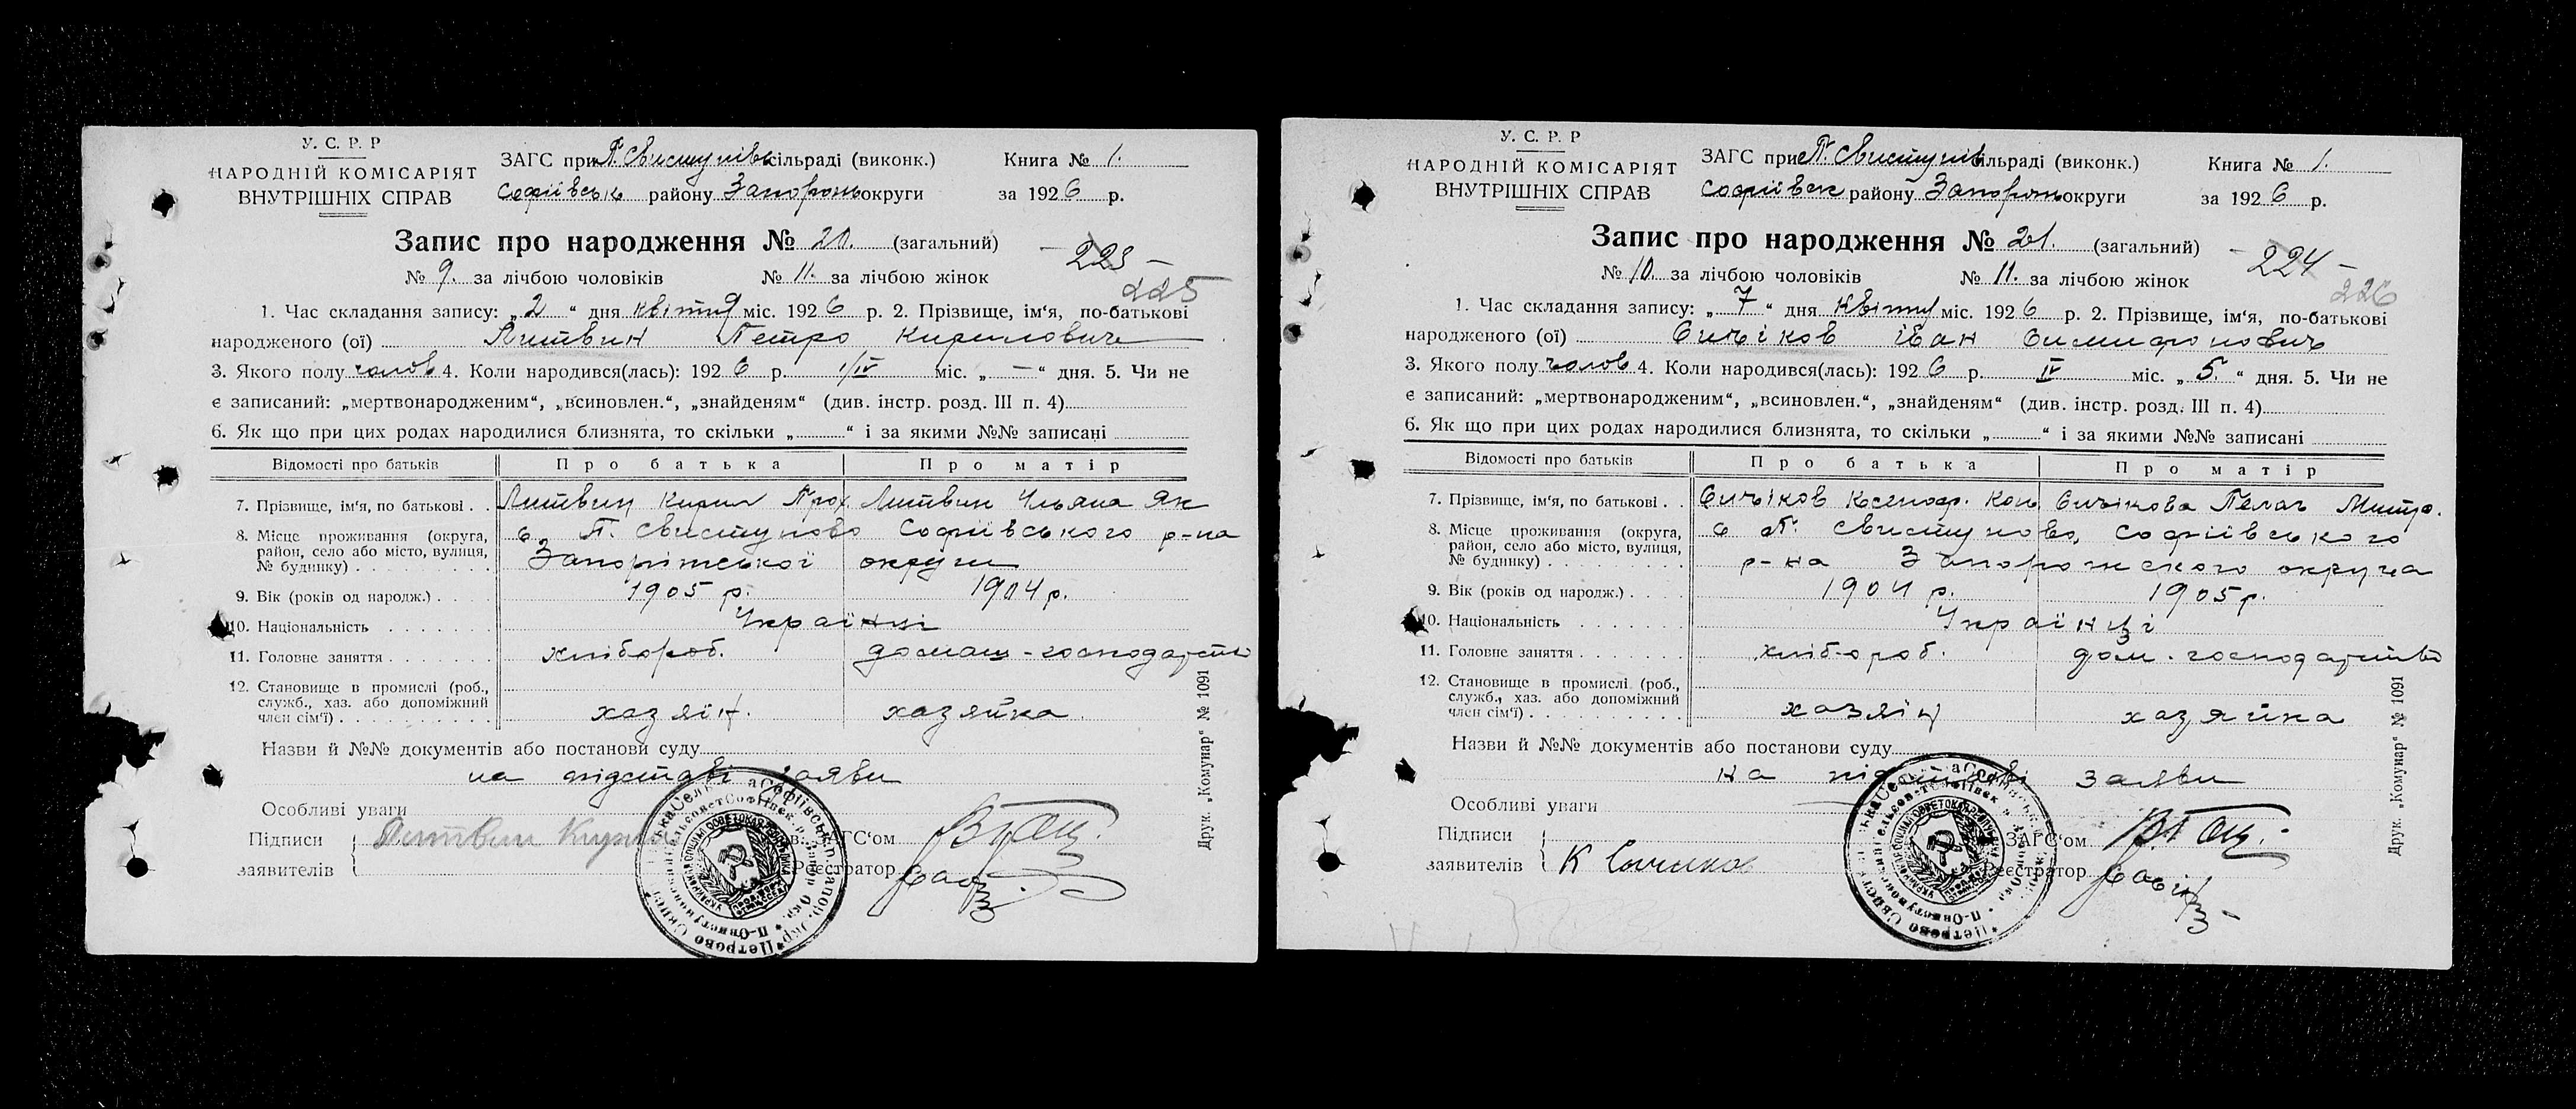 У. С. Р. Р
НАРОДНІЙ КОМІСАРІЯТ
ВНУТРІШНІХ СПРАВ
ЗАГС при П. Свистунівс сільраді (виконк.)
Софіївськ району Запорож округи
Книга № 1.
за 1926 р.
Запис про народження № 20. (загальний)
№ 9. за лічбою чоловіків № 11. за лічбою жінок
223
225
1. Час складання запису: „2“ дня квітня міс. 1926 р. 2. Прізвище, ім‘я, по-батькові
народженого (ої) Литвин Петро Кирилович
3. Якого полу чолов 4. Коли народився(лась): 1926 р. 1/IV міс. „—“ дня. 5. Чи не
є записаний: „мертвонародженим“, „всиновлен.“, „знайденям“ (див. інстр. розд. III п. 4)
6. Як що при цих родах народилися близнята, то скільки „ “ і за якими №№ записані
Відомості про батьків Про батька Про матір
7. Прізвище, ім‘я, по батькові . . Литвин Кирил Прох. Литвин Ульяна Як
8. Місце проживання (округа, район, село або місто, вулиця, № будинку) с. П. Свистуново Софіївського р-на
Запорізської округи
9. Вік (років од народж.) 1905 р. 1904 р.
10. Національність Українці
11. Головне заняття хлібороб. домаш-господарство
12. Становище в промислі (роб., служб., хаз. або допоміжний член сім‘ї) хазяїн. хазяйка.
Назви й №№ документів або постанови суду
на підставі заяви
Особливі уваги
Підписи
заявителів Литвин Кирил
Зав. ЗАГС‘ом
Реєстратор
Друк. „Комунар“ № 1091
У. С. Р. Р
НАРОДНІЙ КОМІСАРІЯТ
ВНУТРІШНІХ СПРАВ
ЗАГС при П. Свистунів сільраді (виконк.)
Софіївск району Запорож округи
Книга № 1.
за 1926 р.
Запис про народження № 21. (загальний)
№ 10. за лічбою чоловіків № 11. за лічбою жінок
224
226
1. Час складання запису: „7“ дня квітня міс. 1926 р. 2. Прізвище, ім‘я, по-батькові
народженого (ої) Сичіков Іван
3. Якого полу чолов 4. Коли народився(лась): 1926 р. IV міс. „5.“ дня. 5. Чи не
є записаний: „мертвонародженим“, „всиновлен.“, „знайденям“ (див. інстр. розд. III п. 4)
6. Як що при цих родах народилися близнята, то скільки „ “ і за якими №№ записані
Відомості про батьків Про батька Про матір
7. Прізвище, ім‘я, по батькові . . Сичіков Ксеноф. Кон. Сичікова Пелаг Митр.
8. Місце проживання (округа, район, село або місто, вулиця, № будинку) с П. Свистуново, Софіївського
р-на Запорожского округа
9. Вік (років од народж.) 1904 р. 1905 р.
10. Національність Українці
11. Головне заняття хлібороб. дом. господарство
12. Становище в промислі (роб., служб., хаз. або допоміжний член сім‘ї) хазяїн хазяйка
Назви й №№ документів або постанови суду
на підставі заяви
Особливі уваги
Підписи
заявителів К Сичиков
ЗАГС‘ом
Реєстратор
Друк. „Комунар“ № 1091